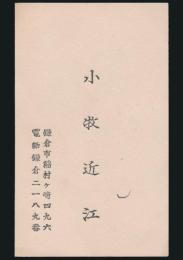 小牧近江
鎌倉市稲村ヶ崎四九六
電話鎌倉二一八九番